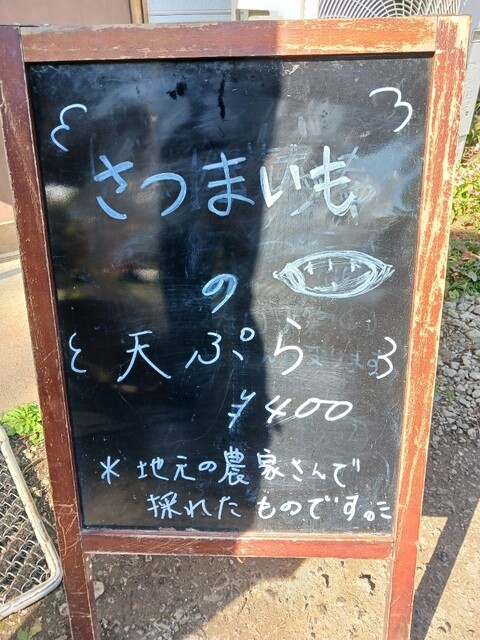 さつまいも
の
天ぷら
¥400
＊地元の農家さんで
採れたものです。